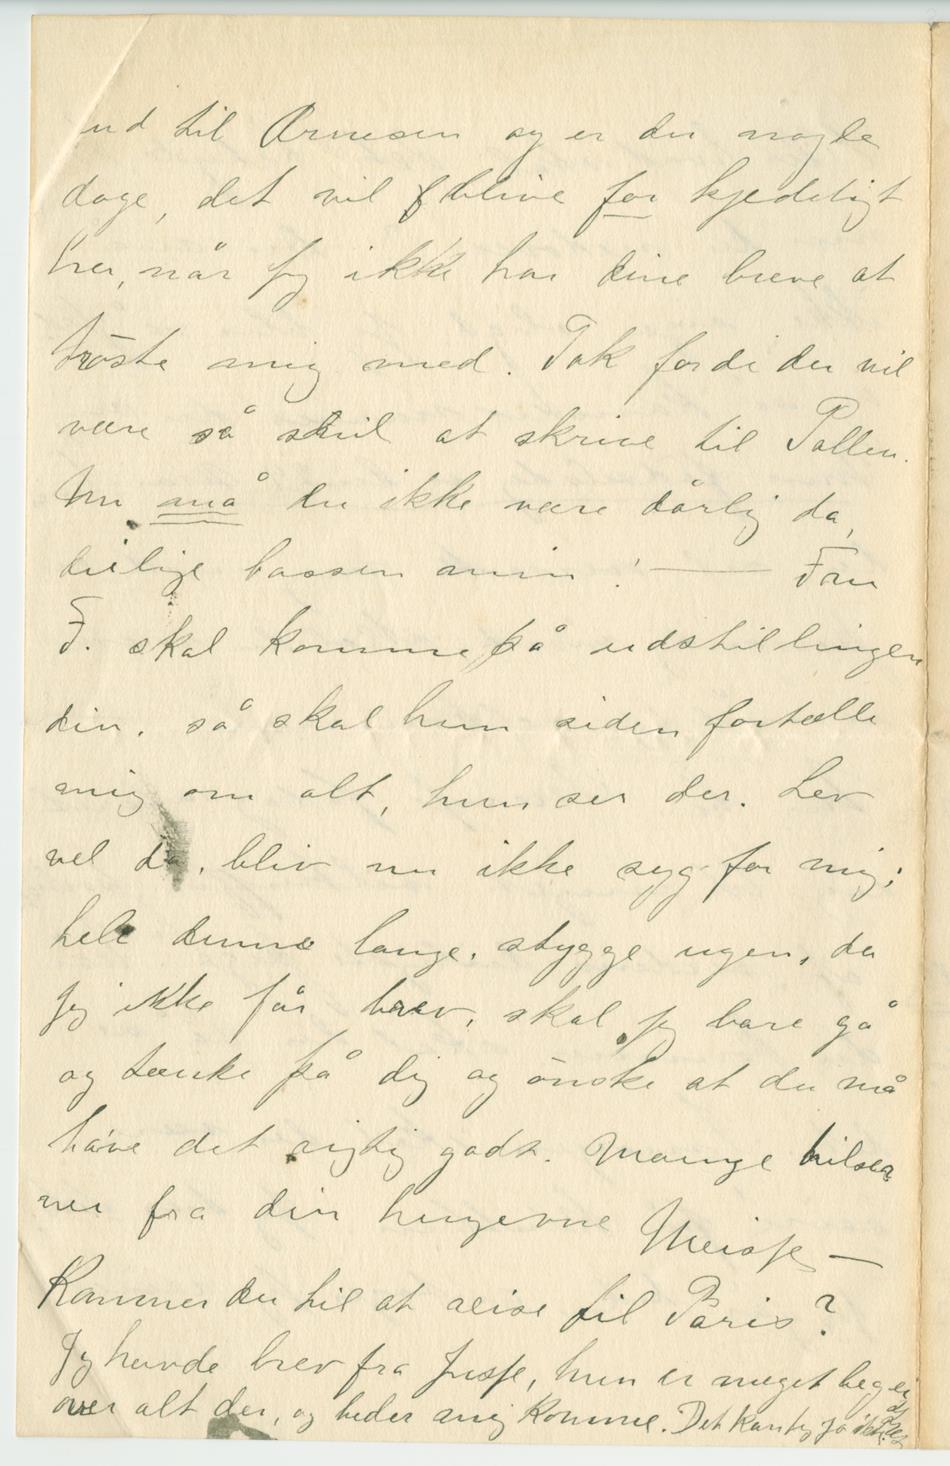 ud til Arnesen og er der nogle
dage, det vil blive for kjedeligt
her, når jeg ikke har dine breve at
trøste mig med. Tak fordi du vil
være så snil at skrive til Pallen.
Nu må du ikke være dårlig da,
deilige bassen min! — Fru
F. skal komme på udstillingen
din, så skal hun siden fortælle
mig om alt, hun ser der. Lev
vel da, bliv nu ikke syg for mig;
hele denne lange, stygge ugen, da
jeg ikke får brev, skal jeg bare gå
og tænke på dig og ønske at du må
have det rigtig godt. Mange hilsen
ner fra din hengivne
Kommer du til at reise til Paris?
Jeg havde brev fra , hun er meget
over alt der, og beder mig komme. Det kan jeg jo ikke